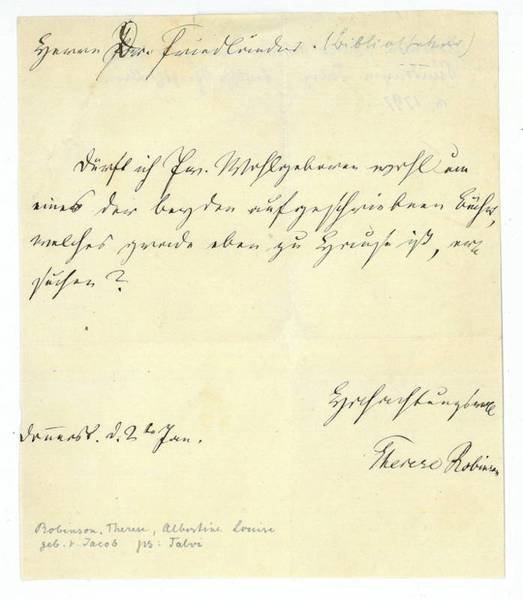 Herrn Dr. Friedländer. (Bibliothekar)
Dürft ich Ew. Wohlgeboren wohl um
eines der beyden aufgeschriebnen Bücher,
welches grade eben zu Hause ist, er-
suchen?
Hochachtungsvoll
Donnerst. d. 2 ten Jan.
Therese Robinson
Robinson, Therese, Albertine Louise
geb. v. Jacob ps: Talvi